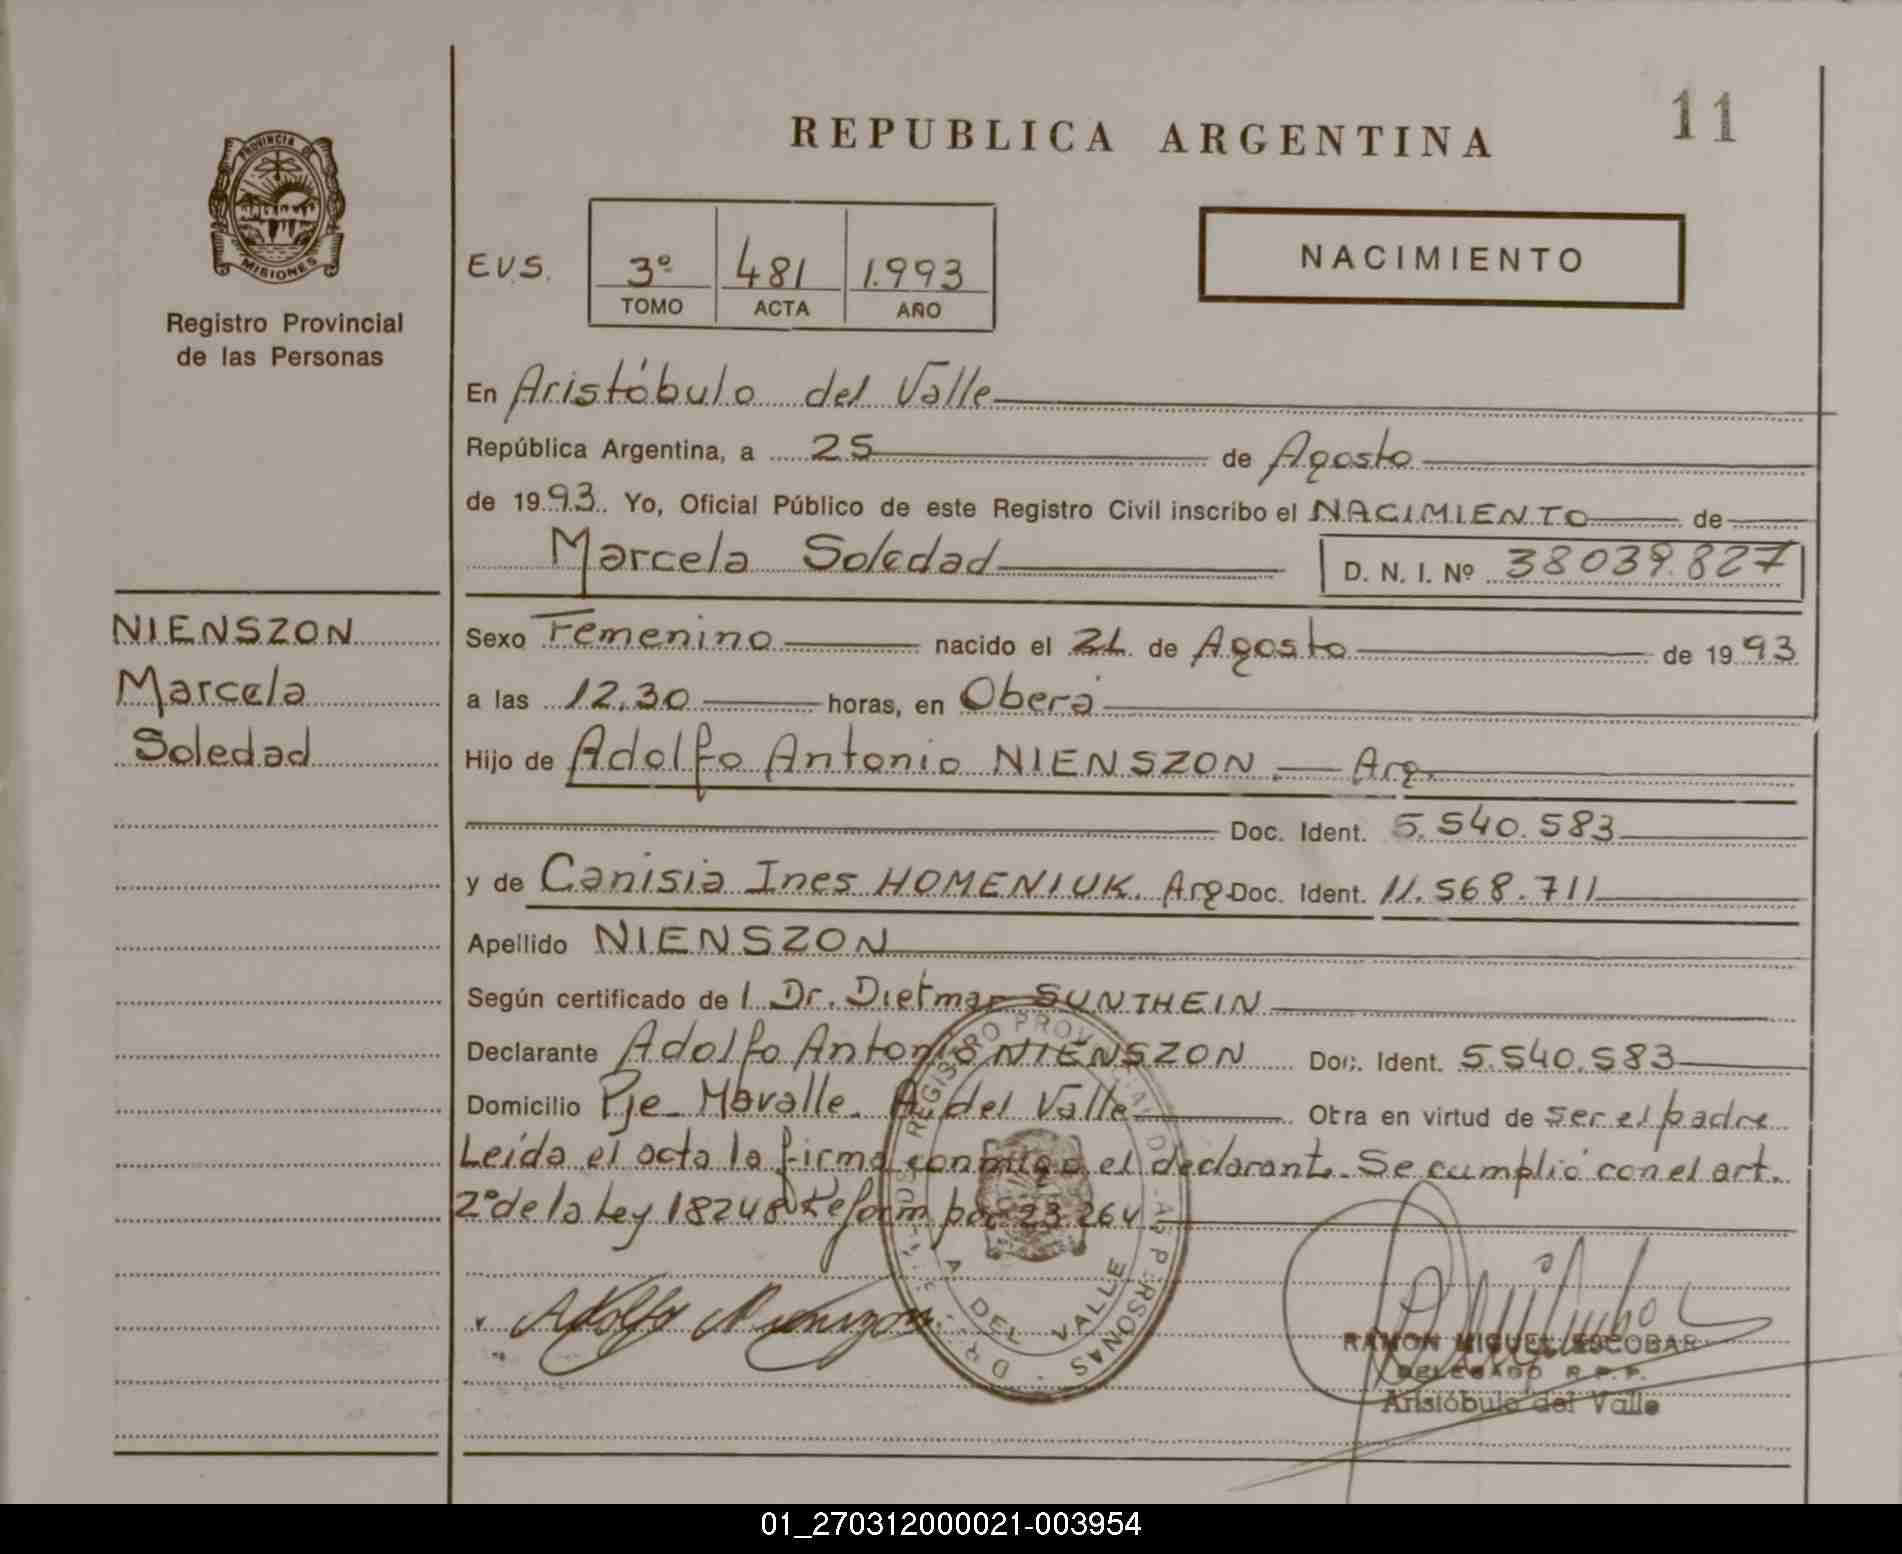 REPUBLICA ARGENTINA
11
PROVINCIA DE
MISIONES
Registro Provincial
de las Personas
E.V.S.
3º 481 1.993
TOMO ACTA AÑO
NACIMIENTO
En Aristóbulo del Valle
República Argentina, a 25 de Agosto
de 1993. Yo, Oficial Público de este Registro Civil inscribo el NACIMIENTO de
Marcela Soledad D. N. I. Nº 38039.827
NIENSZON
Marcela
Soledad
Sexo Femenino nacido el de Agosto de 1993
a las 12.30 horas, en Oberá
Hijo de Adolfo Antonio NIENSZON. Arg.
Doc. Ident. 5.540.583
y de Canisia Ines HOMENIUK. Arg. Doc. Ident. 11.568.711
Apellido NIENSZON
Según certificado de l Dr. Dietmar SUNTHEIN
Declarante Adolfo Antonio NIENSZON Doc. Ident. 5.540.583
Domicilio Pje Mavalle. A. del Valle Obra en virtud de ser el padre
Leída el acta la firma conmigo el declarant. Se cumplió con el art.
2º de la Ley 18248 Reform por 23.264
A. DEL VALLE
Adolfo Nienszon
RAMON MIGUEL ESCOBAR
DELEGADO R.P.P.
Aristóbulo del Valle
01_270312000021-003954